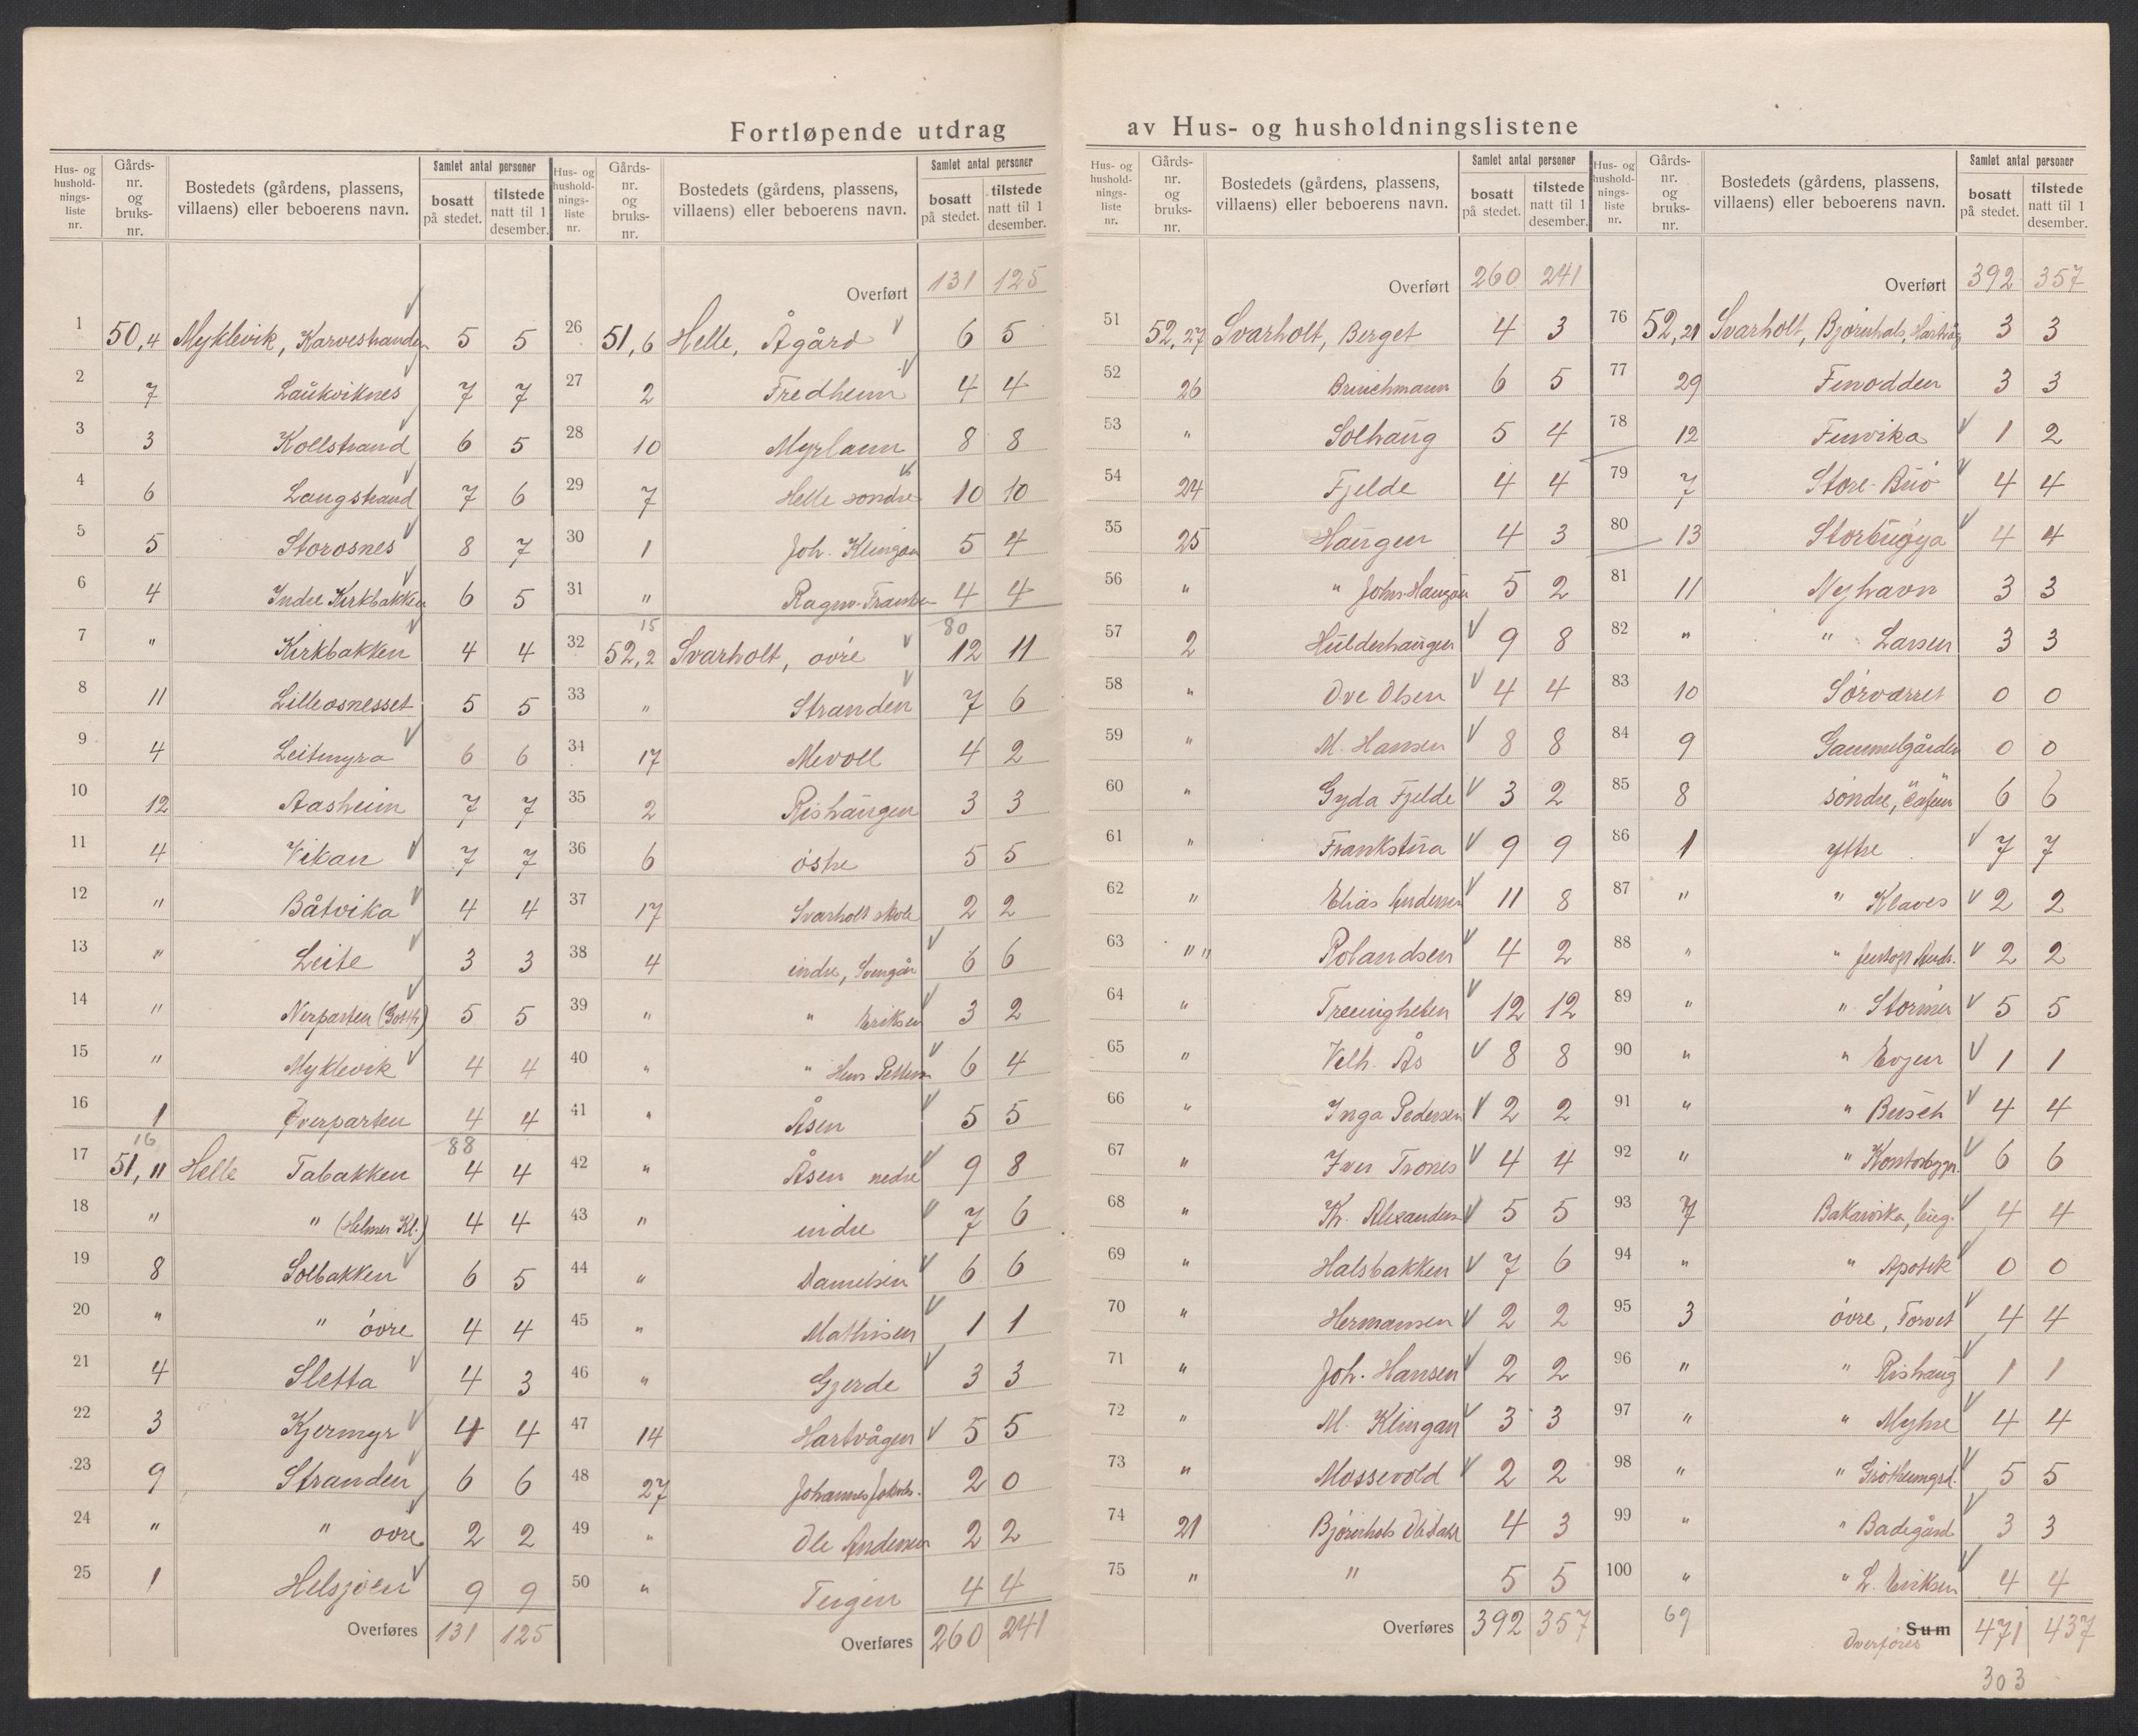 Fortløpende utdrag av Hus- og husholdningslistene
Hus- og husholdningsliste nr. | Gårds-nr. og bruks-nr. | Bostedets (gårdens, plassens, villaens) eller beboerens navn. | Samlet antal personer | bosatt på stedet. | tilstede natt til 1 desember.
1 50,4 Myklevik, Karvestranden 5 5
2 7 Laukviknes 7 7
3 3 Kollstrand 6 5
4 6 Langstrand 7 6
5 5 Storosnes 8 7
6 4 Indre Kirkbakken 6 5
7 " Kirkbakken 4 4
8 11 Lilleosnesset 5 5
9 4 Leitmyra 6 6
10 12 Aasheim 7 7
11 4 Vikan 7 7
12 " Båtvika 4 4
13 " Leite 3 3
14 " Nerparten 5 5
15 " Myklevik 4 4
16 1 Øverparten 4 4
16 88
17 51,11 Helle Tabakken 4 4
18 " " (Helmer Kl.) 4 4
19 8 Solbakken 6 5
20 " " övre 4 4
21 4 Sletta 4 3
22 3 Kjermyr 4 4
23 9 Stranden 6 6
24 " " övre 2 2
25 1 Helsjöen 9 9
Overføres 131 125
Hus- og husholdningsliste nr. | Gårds-nr. og bruks-nr. | Bostedets (gårdens, plassens, villaens) eller beboerens navn. | Samlet antal personer | bosatt på stedet. | tilstede natt til 1 desember.
Overført 131 125
26 51,6 Helle, Ågård 6 5
27 2 Fredheim 4 4
28 10 Myrlann 8 8
29 7 Helle söndre 10 10
30 1 Joh. Klingan 5 4
31 " Ragnv. 4 4
15 80
32 52,2 Svarholt, övre 12 11
33 " Stranden 7 6
34 17 Mevoll 4 2
35 2 Rishaugen 3 3
36 6 östre 5 5
37 17 Svarholt skole 2 2
38 4 indre, 6 6
39 " " Eriksen 3 2
40 " " Hans Petters 6 4
41 " Åsen 5 5
42 " Åsen nedre 9 8
43 " indre 7 6
44 " Danielsen 6 6
45 " Mathisen 1 1
46 " Gjerde 3 3
47 14 Hartvågen 5 5
48 27 Johannes 2 0
49 " Ole Andersen 2 2
50 " Teigen 4 4
Overføres 260 241
Hus- og husholdningsliste nr. | Gårds-nr. og bruks-nr. | Bostedets (gårdens, plassens, villaens) eller beboerens navn. | Samlet antal personer | bosatt på stedet. | tilstede natt til 1 desember.
Overført 260 241
51 52,27 Svarholt, Berget 4 3
52 26 Brinchmann 6 5
53 " Solhaug 5 4
54 24 Fjelde 4 4
55 25 Haugen 4 3
56 " " Johs. Haugan 5 2
57 2 Hulderhaugen 9 8
58 " Ove Olsen 4 4
59 " M. Hansen 8 8
60 " Gyda Fjelde 3 2
61 " Frankstua 9 9
62 " Elias Andersen 11 8
63 " " Rolandsen 4 2
64 " Treenigheten 12 12
65 " Velh. Ås 8 8
66 " Inga Pedersen 2 2
67 " Iver Trones 4 4
68 " Kr. Alexanders 5 5
69 " Halsbakken 7 6
70 " Hermansen 2 2
71 " Joh. Hansen 2 2
72 " M. Klingan 3 3
73 " Mossevold 2 2
74 21 Bjönnhals 4 3
75 " " 5 5
Overføres 392 357
Hus- og husholdningsliste nr. | Gårds-nr. og bruks-nr. | Bostedets (gårdens, plassens, villaens) eller beboerens navn. | Samlet antal personer | bosatt på stedet. | tilstede natt til 1 desember.
Overført 392 357
76 52,21 Svarholt, Bjönnhals, 3 3
77 29 Finnodden 3 3
78 12 Finnvika 1 2
79 7 Store-Buö 4 4
80 13 Storbuöya 4 4
81 11 Nyhavn 3 3
82 " " Larsen 3 3
83 10 Sörværret 0 0
84 9 Gammelgården 0 0
85 8 söndre, 6 6
86 1 ytre 7 7
87 " " Klaves 2 2
88 " " 2 2
89 " " Störmer 5 5
90 " " Evjen 1 1
91 " " Busch 4 4
92 " " Kontorbygn. 6 6
93 7 Bakarvika, 4 4
94 " " Apotek 0 0
95 3 övre, Torvet 4 4
96 " " Rishaug 1 1
97 " " Myhre 4 4
98 " " 5 5
99 " " Badegård 3 3
100 " " L. Eriksen 4 4
69 Sum 471 437
Overføres
303